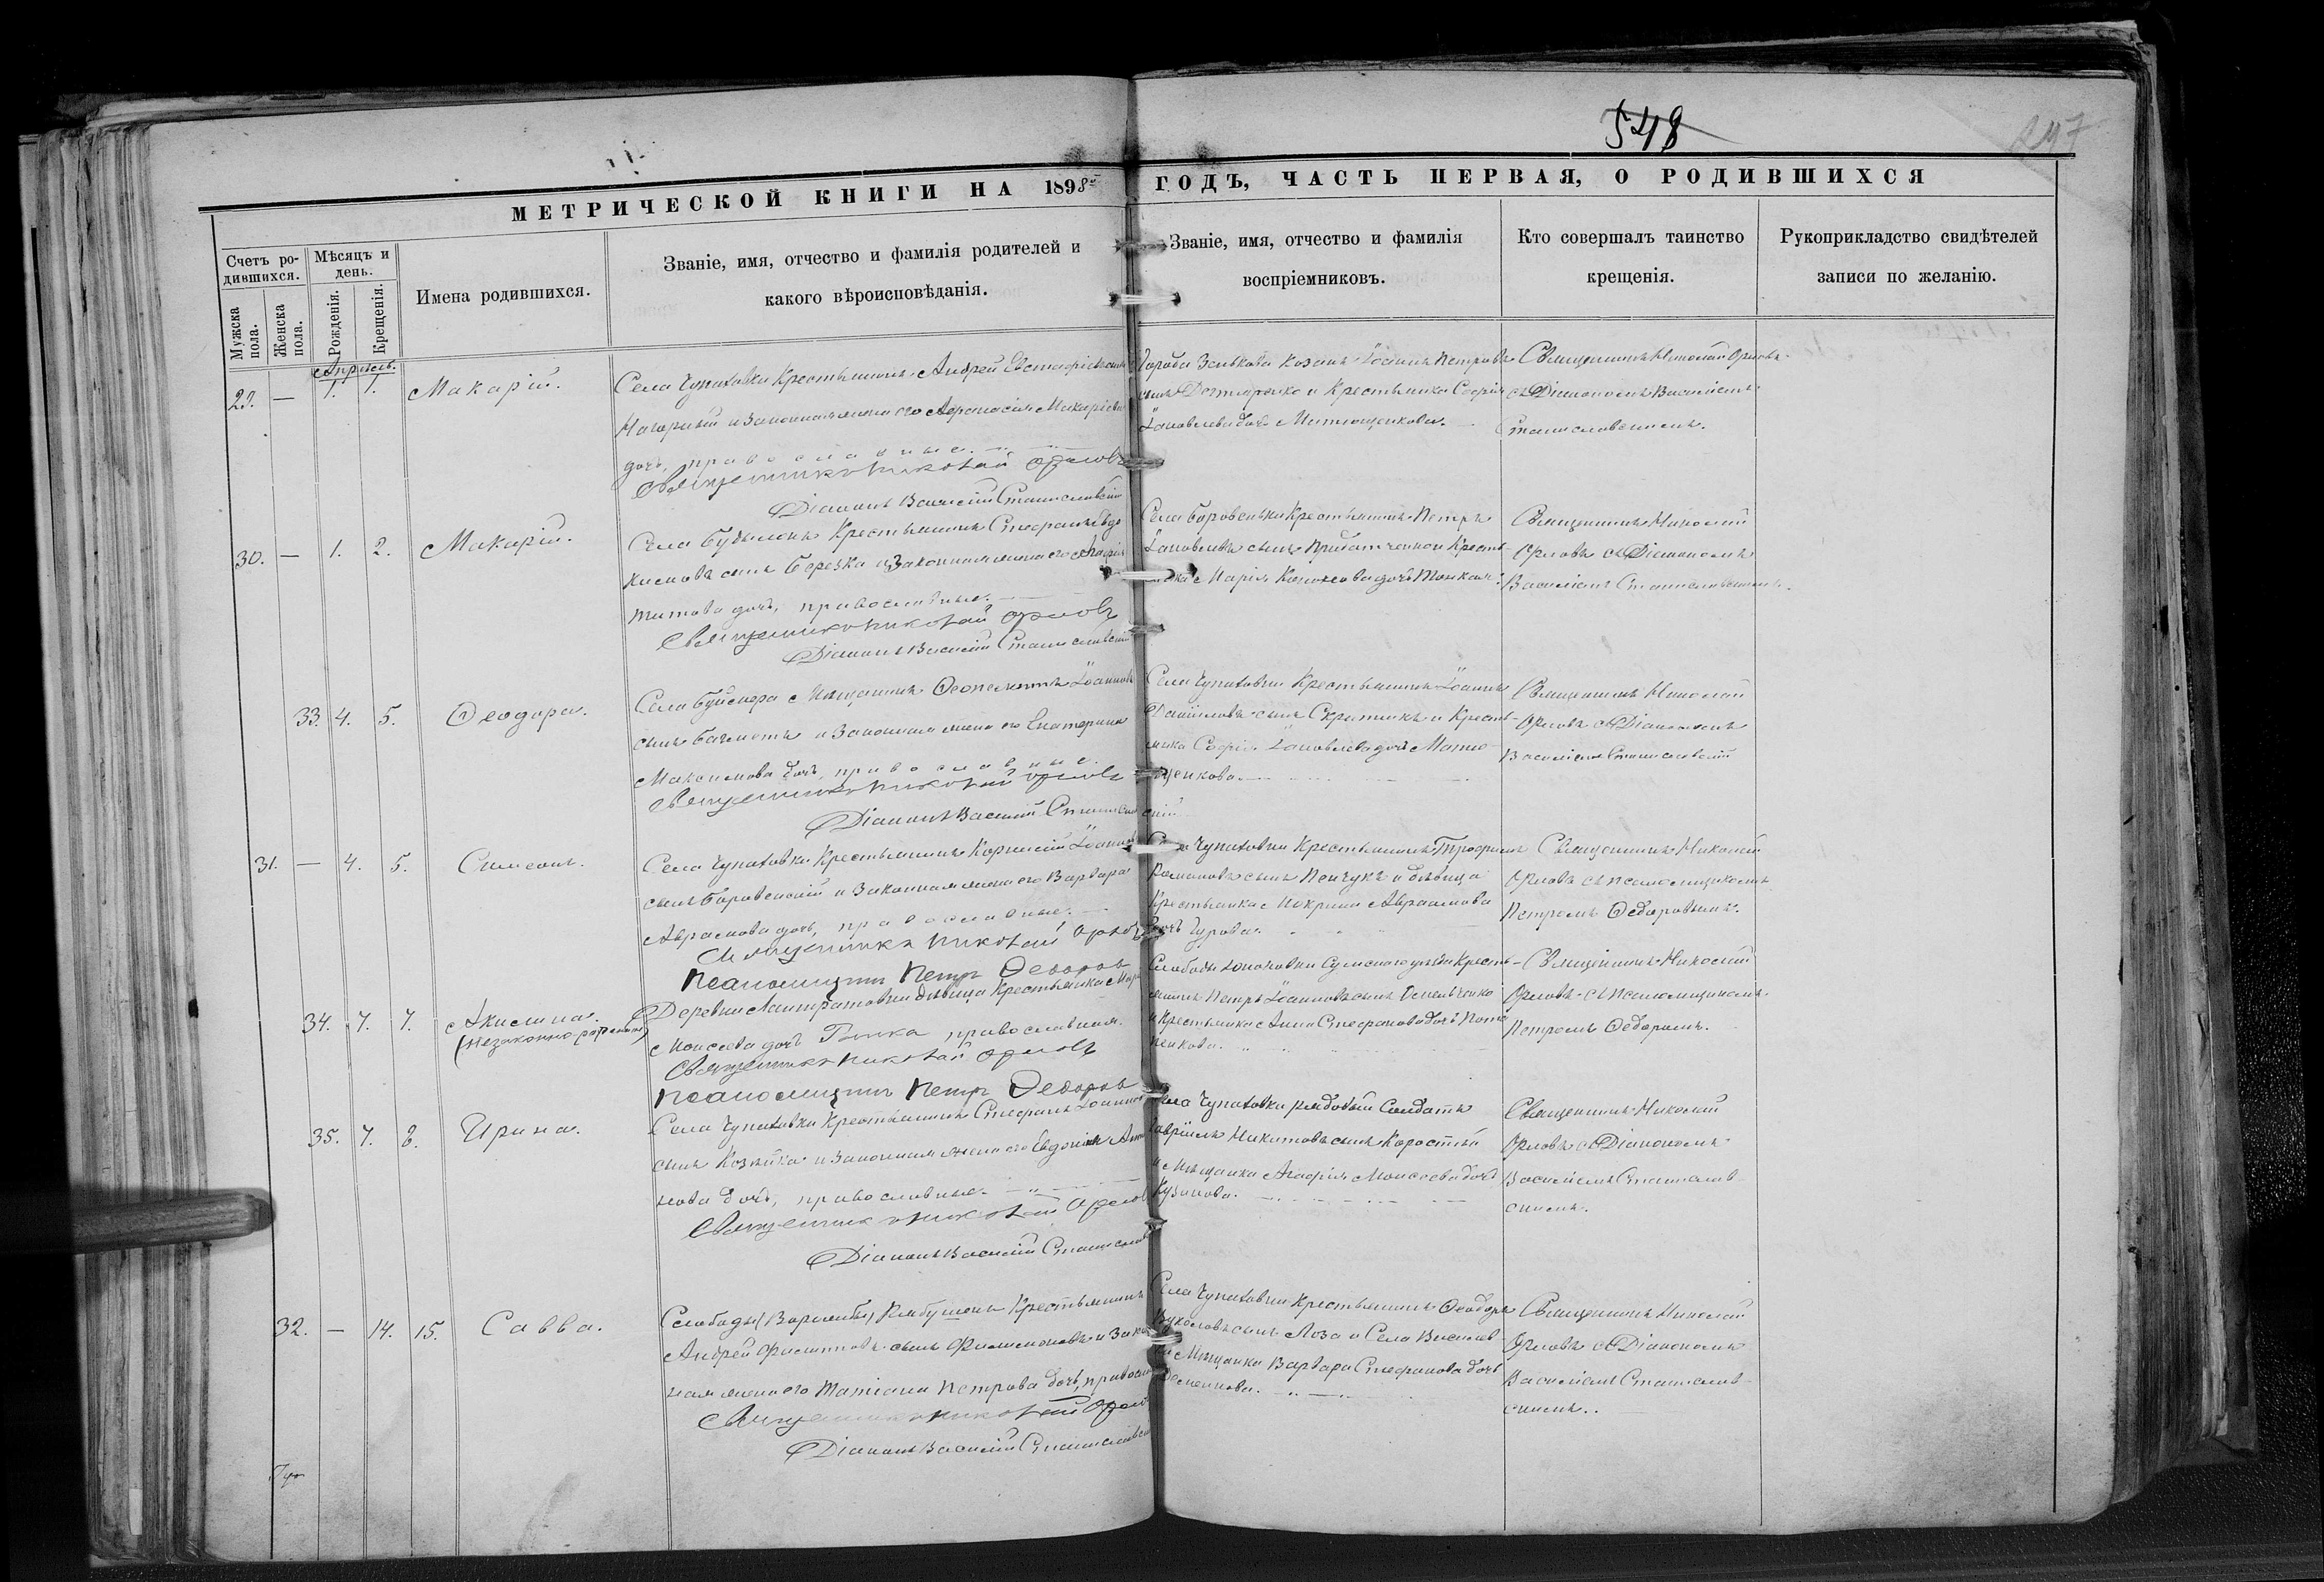 548
247
МЕТРИЧЕСКОЙ КНИГИ НА 1898й ГОДЪ, ЧАСТЬ ПЕРВАЯ, О РОДИВШИХСЯ
Счетъ родившихся.
Мужска пола.
Женска пола.
Мѣсяцъ и день.
Рожденія.
Крещенія.
Имена родившихся.
Званіе, имя, отчество и фамилія родителей и
какого вѣроисповѣданія.
Званіе, имя, отчество и фамилія
воспріемниковъ.
Кто совершалъ таинство
крещенія.
Рукоприкладство свидѣтелей
записи по желанію.
Апрѣль.
29. — 1. 1. Макарій.
Села Чупаховки Крестьянинъ Андрей Евстафіевъ сынъ
Нагорный и законная жена его Афанасія Макаріева
дочь, православные.
Священникъ Николай Орловъ
Діаконъ Василій Станиславскій
Города Зенькова козакъ Іоаннъ Петровъ
сынъ и Крестьянка Софія
Іаковлева дочь Матющенкова.
Священникъ Николай Орловъ
съ Діакономъ Василіемъ
Станиславскимъ.
30. — 1. 2. Макарій.
Села Будылокъ Крестьянинъ Стефанъ Евдо
кимовъ сынъ Березка и Законная жена его Агафія
Титова дочь, православные.
Священникъ Николай Орловъ
Діаконъ Василій Станиславскій
Села Боровеньки Крестьянинъ Петръ
Іаковлевъ сынъ и Кресть
янка Марія дочь Тонкая.
Священникъ Николай
Орловъ съ Діакономъ
Василіемъ Станиславскимъ.
33. 4. 5. Ѳеодора.
Села Мѣщанинъ Іоанновъ
сынъ и Законная жена его Екатерина
Максимова дочь, православные.
Священникъ Николай Орловъ
Діаконъ Василій Станиславскій
Села Чупаховки Крестьянинъ Іоаннъ
Даніиловъ сынъ Скрипникъ и Кресть-
янка Софія Іаковлева дочь Матю
щенкова.
Священникъ Николай
Орловъ съ Діакономъ
Василіемъ Станиславскимъ
31. — 4. 5. Симеонъ.
Села Чупаховки Крестьянинъ Корнилій Іоанновъ
сынъ Боровенскій и Законная жена его Варвара
Авраамова дочь, православные.
Священникъ Николай Орловъ
Псаломщикъ Петръ Ѳедоровъ
Села Чупаховки Крестьянинъ Трофимъ
Романовъ сынъ Пенчукъ и дѣвица
Крестьянка Мокрина Авраамова
дочь Гурова.
Священникъ Николай
Орловъ съ псаломщикомъ
Петромъ Ѳедоровымъ.
34. 7. 7. Акилина.
(незаконнорожденная)
Деревни дѣвица Крестьянка
Моисеева дочь православная.
Священникъ Николай Орловъ
Псаломщикъ Петръ Ѳедоровъ
Слободы Сумскаго уѣзда Кресть-
янинъ Петръ Іоанновъ сынъ
и Крестьянка Анна Стефанова дочь
Священникъ Николай
Орловъ съ псаломщикомъ
Петромъ Ѳедоровымъ.
35. 7. 8. Ирина.
Села Чупаховки Крестьянинъ Стефанъ Іоанновъ
сынъ Козейка и законная жена его Евдокія
дочь, православные.
Священникъ Николай Орловъ
Діаконъ Василій Станиславскій
Села Чупаховки рядовый Солдатъ
Гавріилъ Никитовъ сынъ Коростый
и Мѣщанка Агафія Моисеева дочь
Кузинова.
Священникъ Николай
Орловъ съ Діакономъ
Василіемъ Станислав-
скимъ.
32. — 14. 15. Савва.
Слободы (Ворожбы) Рябушекъ Крестьянинъ
Андрей Филипповъ сынъ Филимоновъ и Закон
ная жена его Татіана Петрова дочь, православ
Священникъ Николай Орловъ
Діаконъ Василій Станиславскій
Села Чупаховки Крестьянинъ Ѳеодоръ
Вуколовъ сынъ Лоза и Села
Мѣщанка Варвара Стефанова дочь
Семенкова.
Священникъ Николай
Орловъ съ Діакономъ
Василіемъ Станислав-
скимъ.